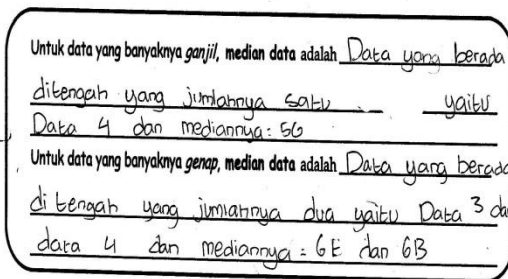 Untuk data yang banyaknya ganjil, median data adalah Data yang berada
ditengah yang jumlahnya satu yaitu
Data 4 dan mediannya : 5G
Untuk data yang banyaknya genap, median data adalah Data yang berada
di tengah yang jumlahnya dua yaitu Data 3 da
data 4 dan mediannya = 6E dan 6B